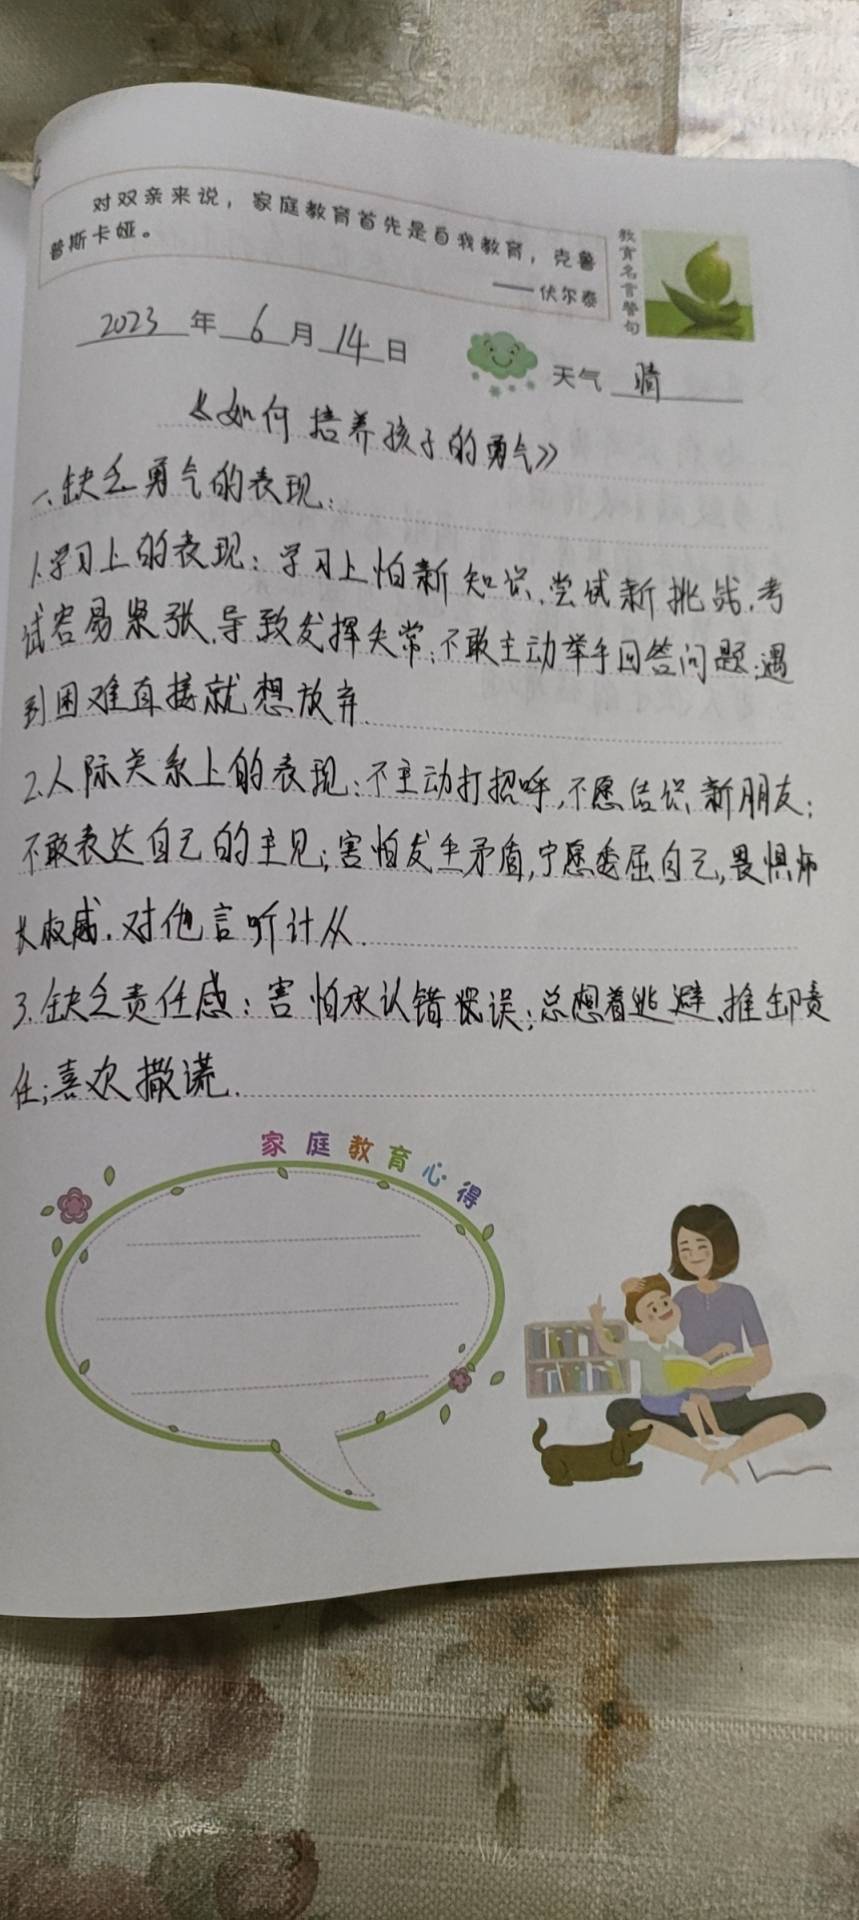 对双亲来说，家庭教育首先是自我教育，克鲁
普斯卡娅。
——伏尔泰
教育名言警句
2023年6月14日
天气 晴
《如何培养孩子的勇气》
一、缺乏勇气的表现：
1.学习上的表现：学习上怕新知识、尝试新挑战，考
试容易紧张，导致发挥失常；不敢主动举手回答问题；遇
到困难直接就想放弃.
2.人际关系上的表现：不主动打招呼，不愿结识新朋友；
不敢表达自己的主见；害怕发生矛盾，宁愿委屈自己，畏惧师
长权威，对他言听计从.
3.缺乏责任感：害怕承认错误；总想着逃避、推卸责
任；喜欢撒谎.
家庭教育心得